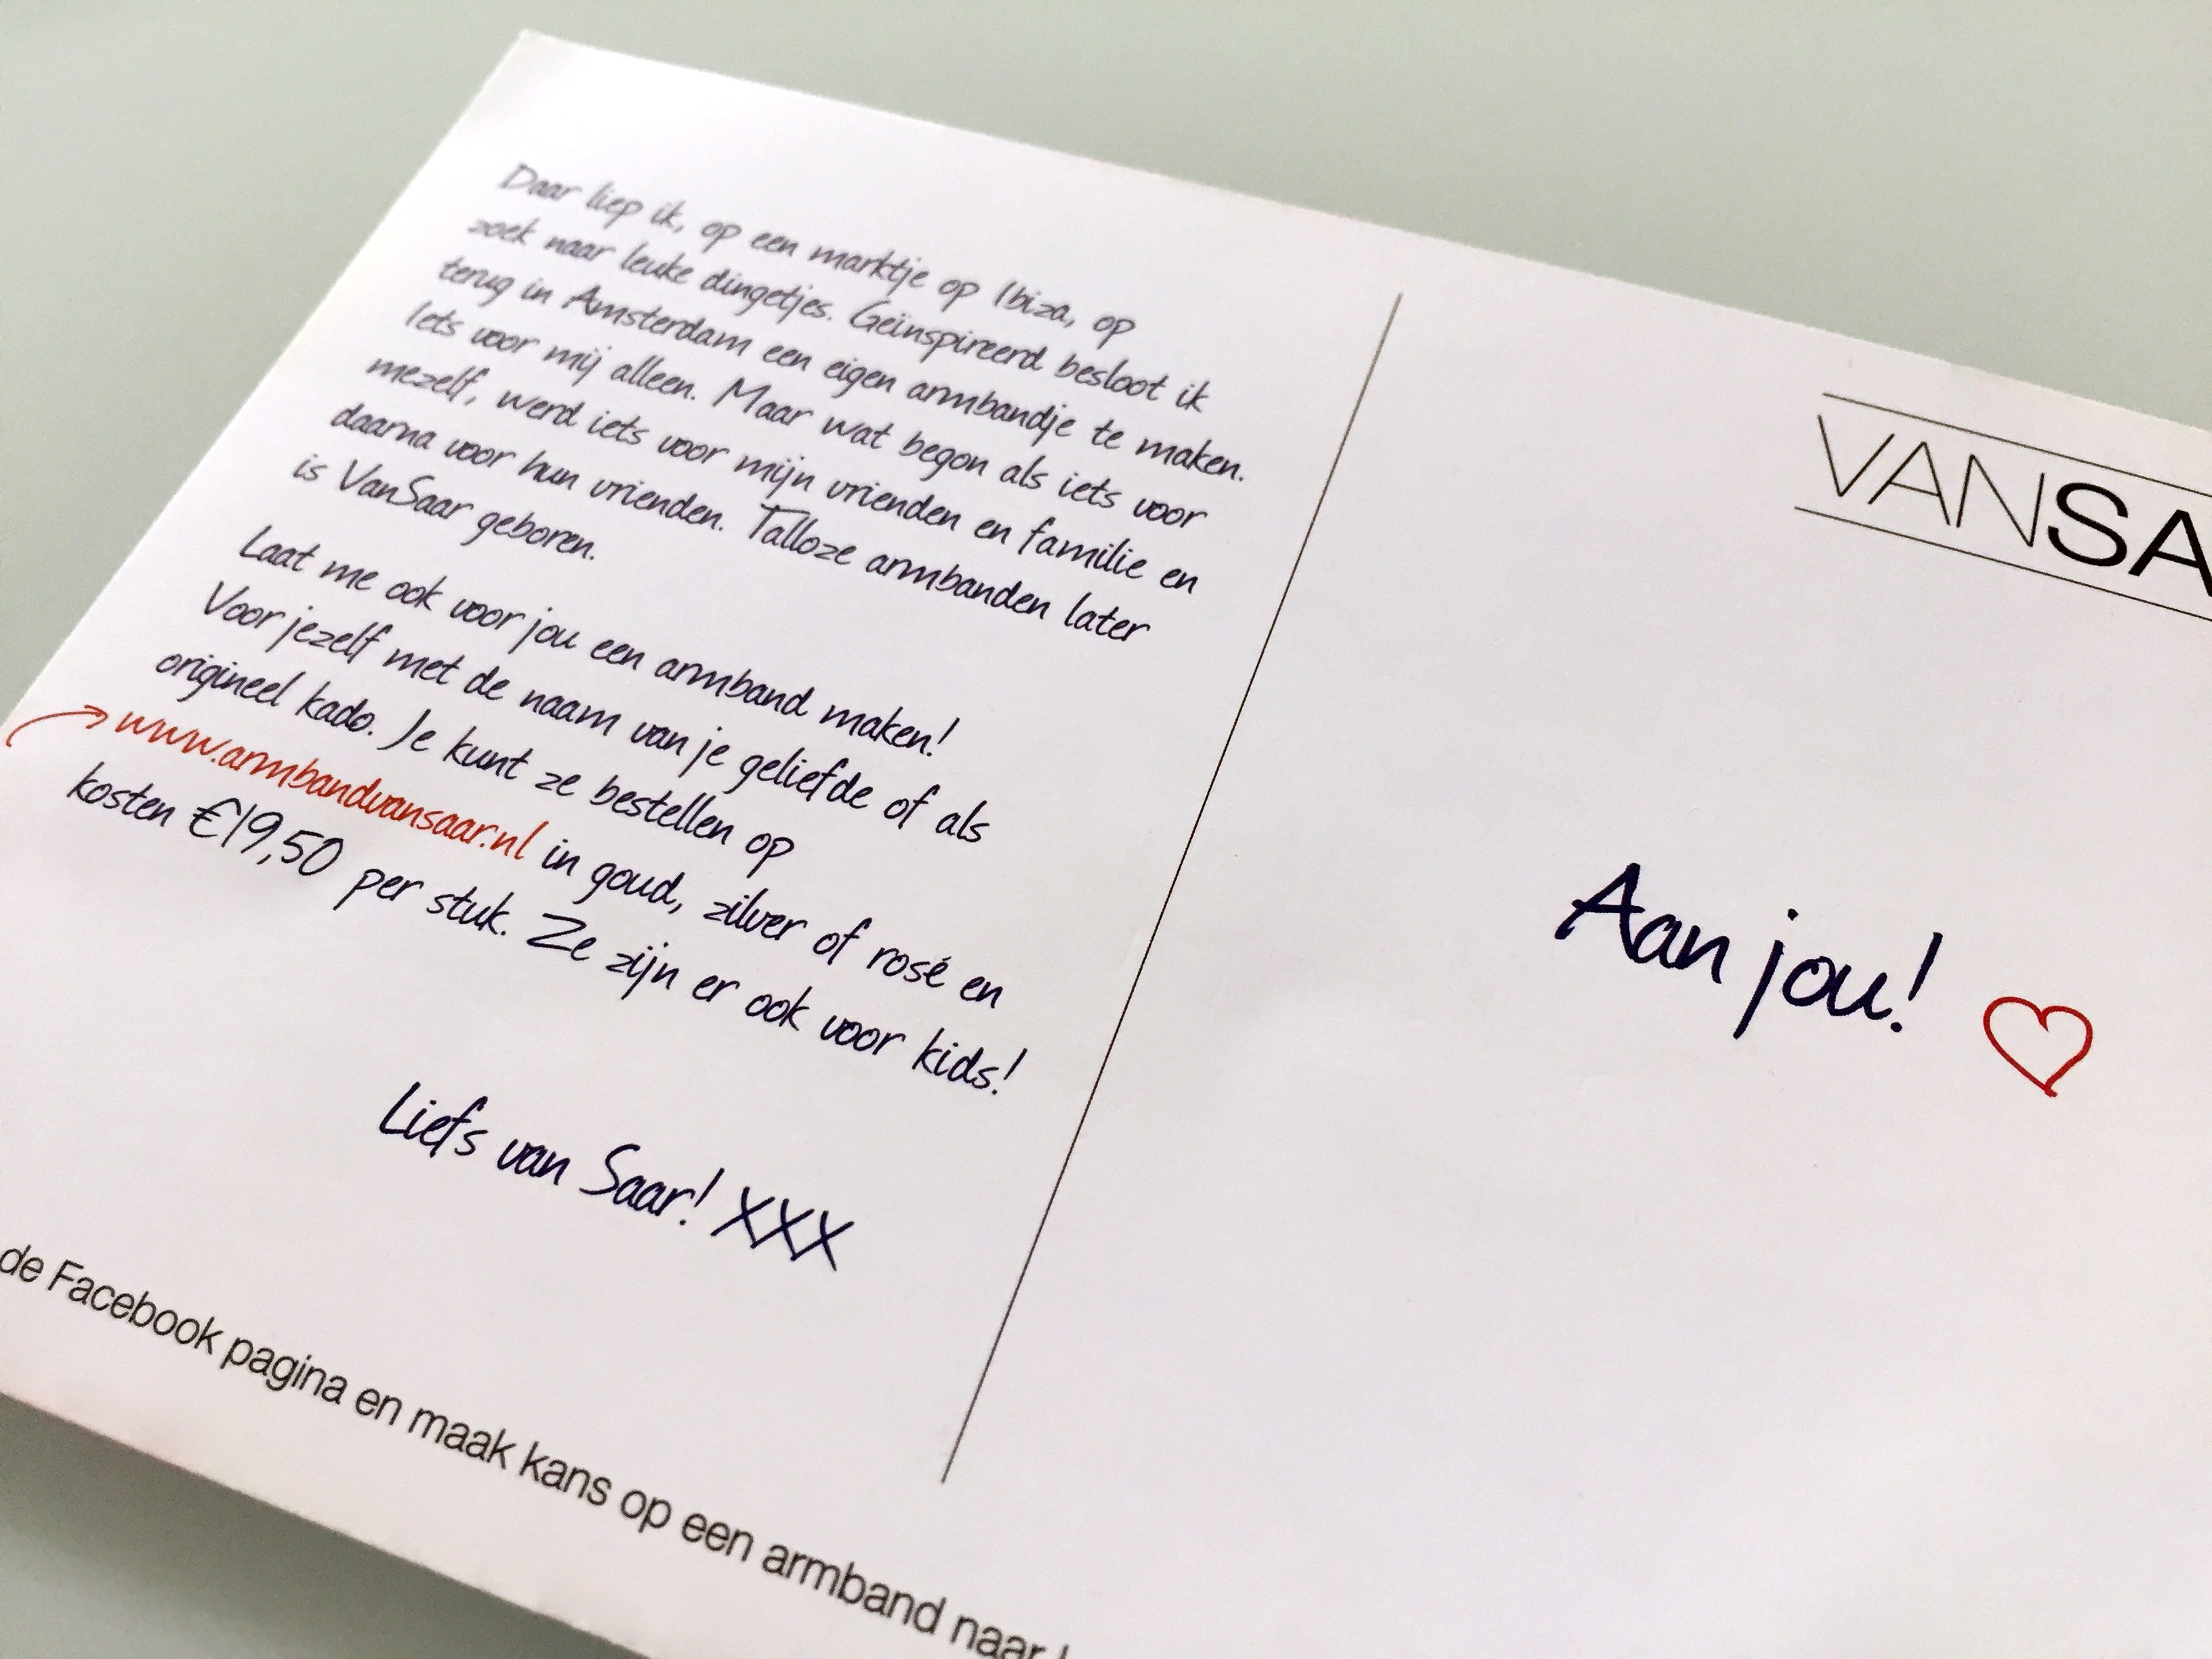 Daar liep ik, op een marktje op Ibiza, op
zoek naar leuke dingetjes. Geïnspireerd besloot ik
terug in Amsterdam een eigen armbandje te maken.
Iets voor mij alleen. Maar wat begon als iets voor
mezelf, werd iets voor mijn vrienden en familie en
daarna voor hun vrienden. Talloze armbanden later
is VanSaar geboren.
Laat me ook voor jou een armband maken!
Voor jezelf met de naam van je geliefde of als
origineel kado. Je kunt ze bestellen op
www.armbandvansaar.nl in goud, zilver of rosé en
kosten €19,50 per stuk. Ze zijn er ook voor kids!
Liefs van Saar! XXX
de Facebook pagina en maak kans op een armband naar
VANSA
Aan jou!